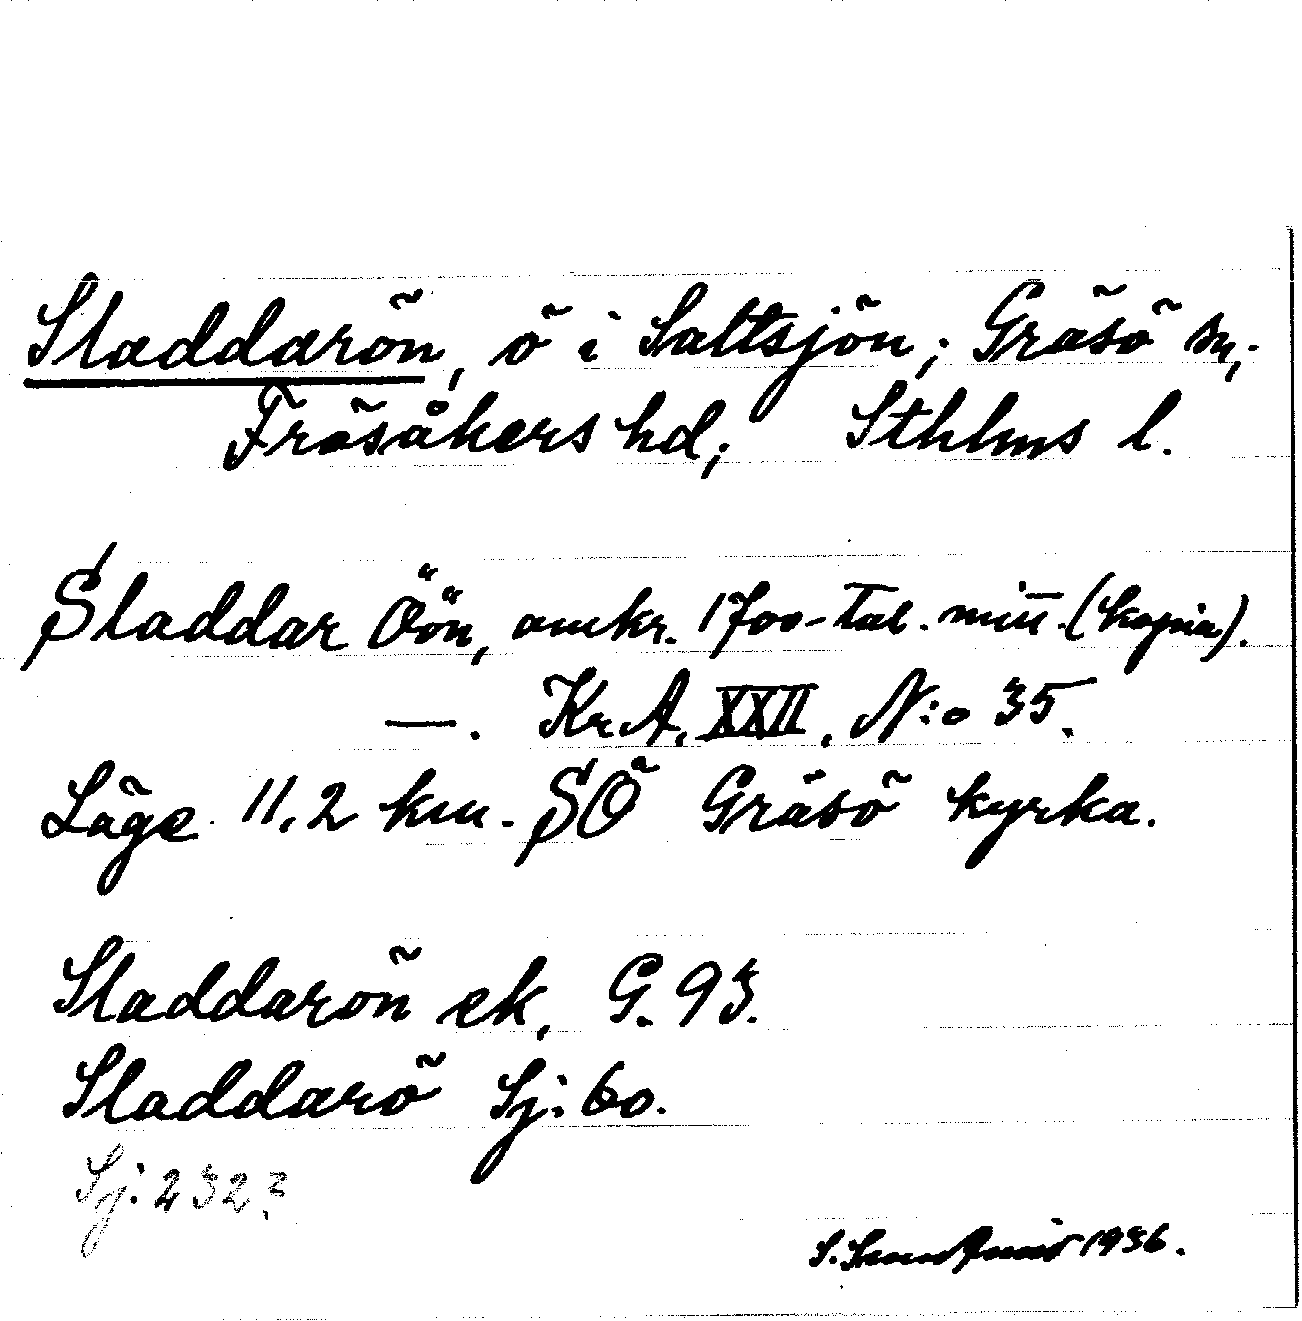 Sladdarön, ö i Saltsjön; Gräsö sn;
Frösåkers hd; Sthlms l.
Sladdar Öön, omkr. 1700-tal. mitt. (kopia).
—. Kr.A. XXII, N:o 35.
Läge 11,2 km. SÖ Gräsö kyrka.
Sladdarön ek, G. 93.
Sladdarö Sj: 60.
Sj: 232?
S. 1936.